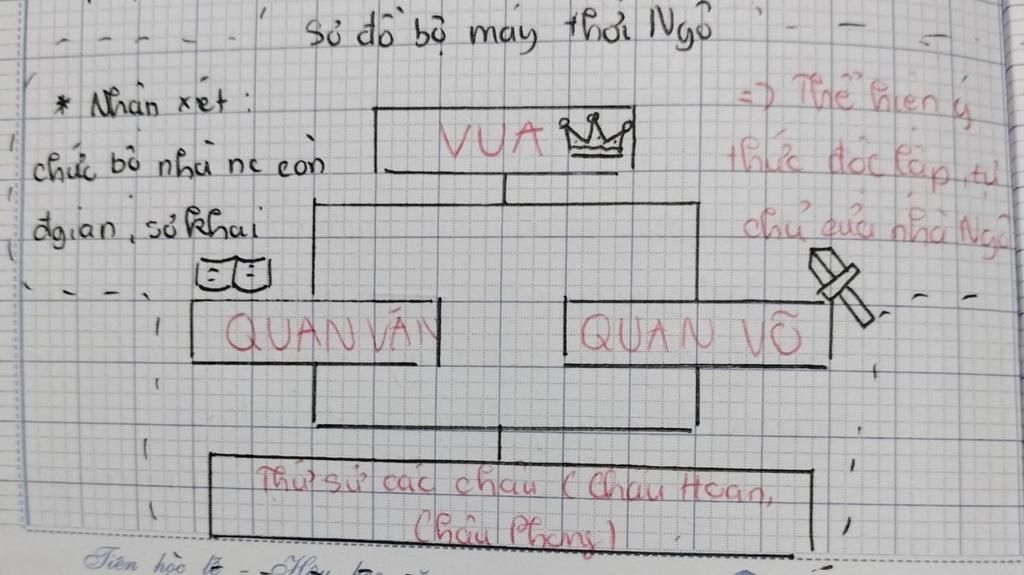 Sơ đồ bộ máy thời Ngô
* Nhận xét:
chức bộ nhà nc còn
đgiản, sơ khai
VUA
=> Thể hiện ý
thức độc lập, tự
chủ của nhà Ngô
QUAN VĂN
QUAN VÕ
Thứ sử các châu (Châu Hoan,
Châu Phong)
Tiên học lễ -